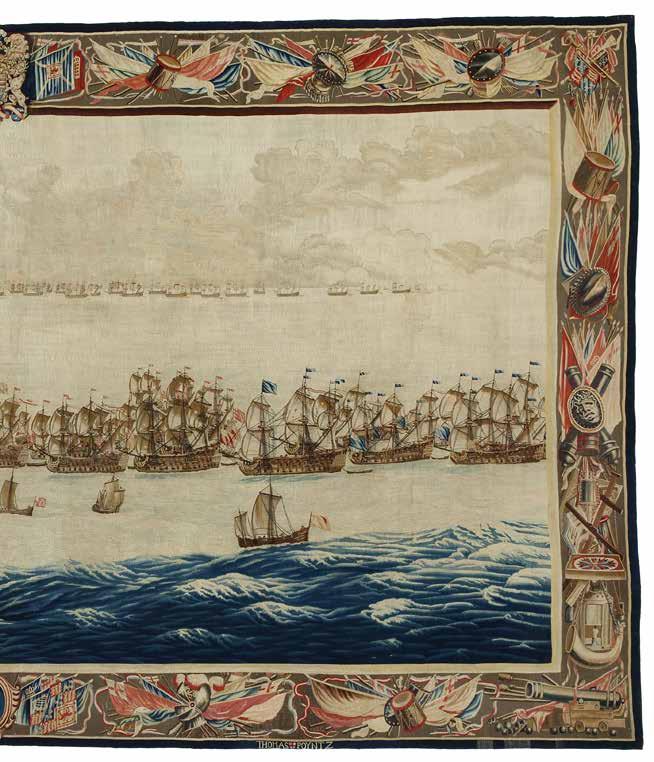 THOMAS POYNTZ